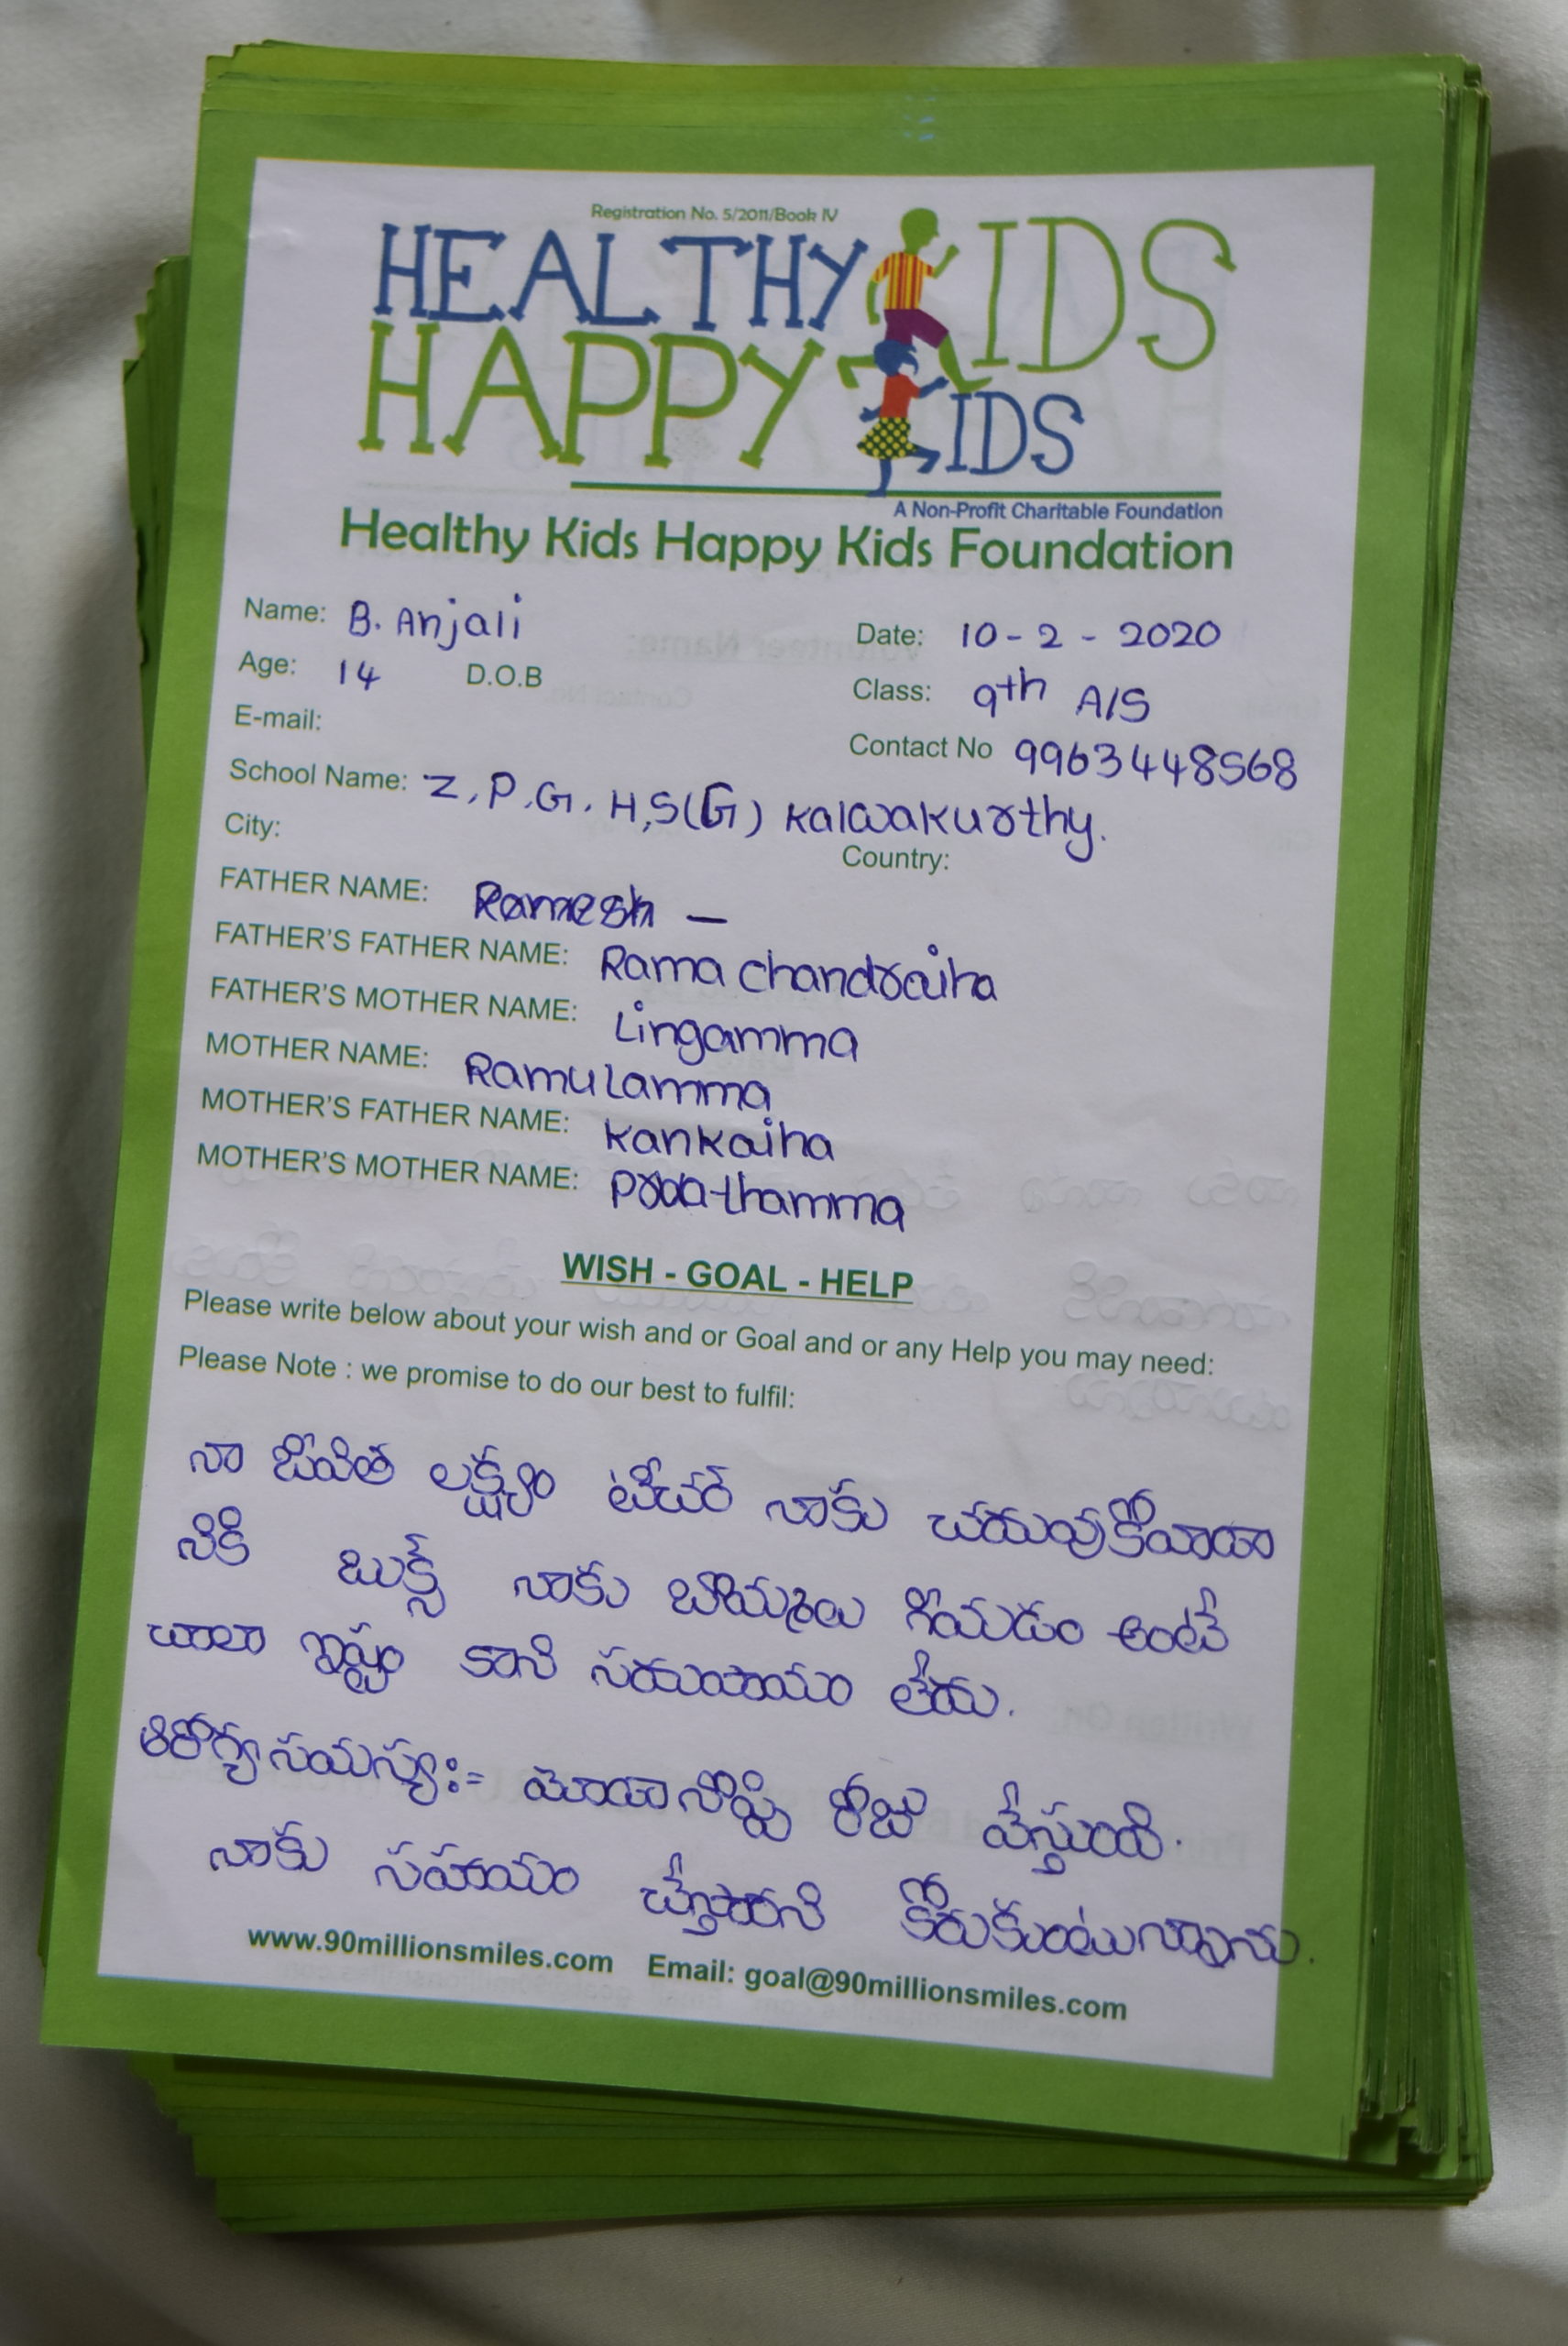 Registration No. 5/2011/Book IV
HEALTHY KIDS
HAPPY KIDS
A Non-Profit Charitable Foundation
Healthy Kids Happy Kids Foundation
Name: B. Anjali Date: 10 - 2 - 2020
Age: 14 D.O.B Class: 9th A/S
E-mail: Contact No 9963448568
School Name: Z.P.G.H.S(G) Kalwakurthy.
City: Country:
FATHER NAME: Ramesh -
FATHER'S FATHER NAME: Rama chandraiha
FATHER'S MOTHER NAME: Lingamma
MOTHER NAME: Ramulamma
MOTHER'S FATHER NAME: Kankaiha
MOTHER'S MOTHER NAME:
WISH - GOAL - HELP
Please write below about your wish and or Goal and or any Help you may need:
Please Note : we promise to do our best to fulfil:
నా జీవిత లక్ష్యం టీచర్ నాకు చదువుకోవడా
నికి బుక్స్ నాకు బొమ్మలు గీయడం అంటే
చాలా ఇష్టం కాని సదుపాయం లేదు.
ఆరోగ్య సమస్య:= మెడా నొప్పి రోజు వేస్తుంది.
నాకు సహాయం చేస్తారని కోరుకుంటున్నాను.
www.90millionsmiles.com Email: goal@90millionsmiles.com